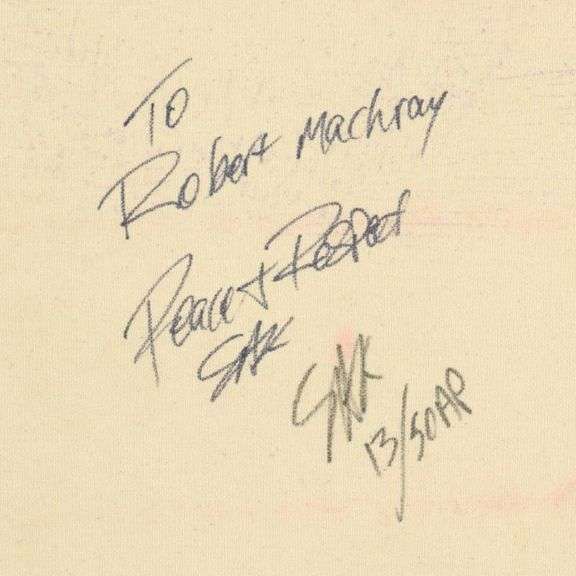 To
Robert Machray
Peace + Respect
SAK
SAK
13/50 AP